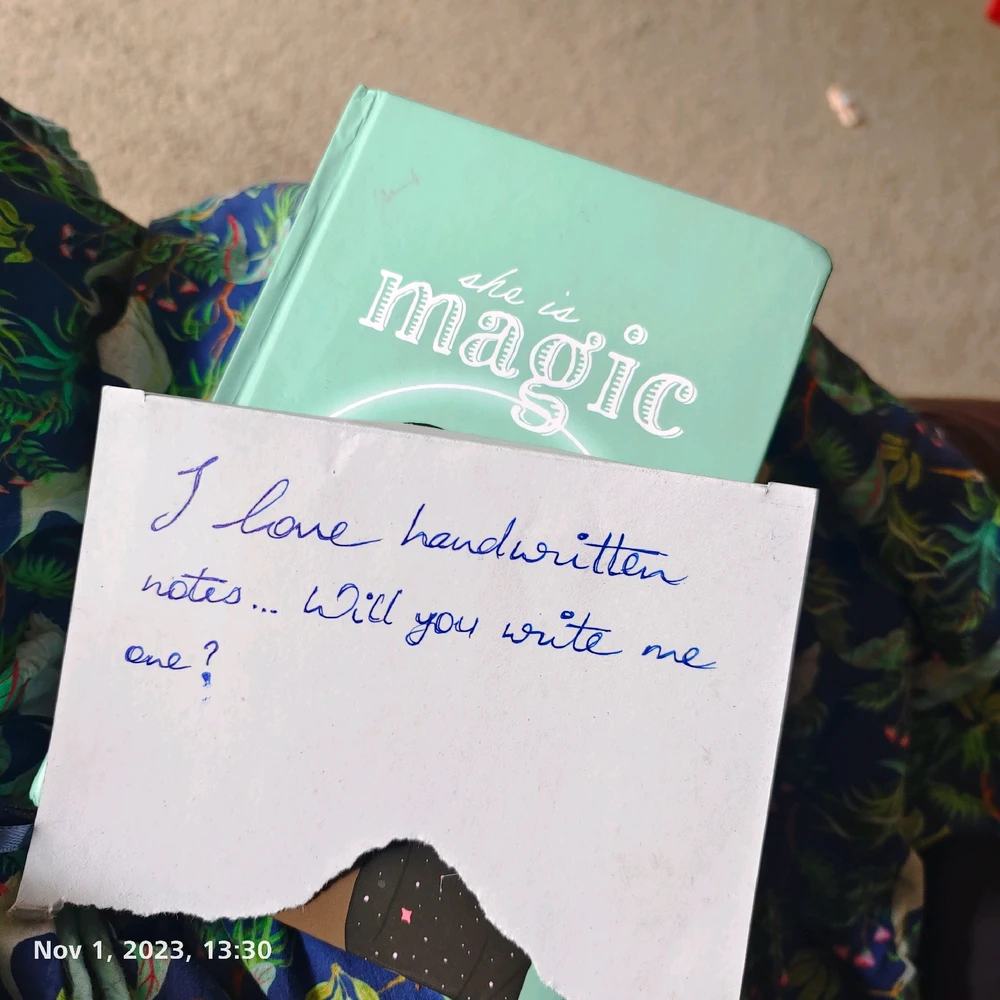 she is
magic
I love handwritten
notes... Will you write me
one?
Nov 1, 2023, 13:30